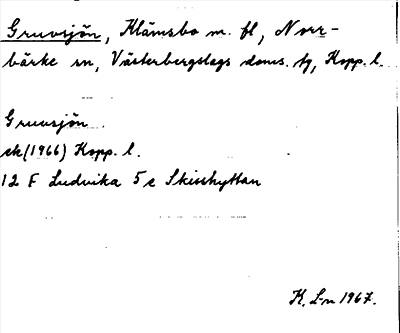 Gruvsjön, Klämsbo m. fl, Norr-
bärke sn, Västerbergslags doms. tg, Kopp. l.
Gruvsjön
ek (1966) Kopp. l.
12 F Ludvika 5 e Skisshyttan
K. L-n 1967.